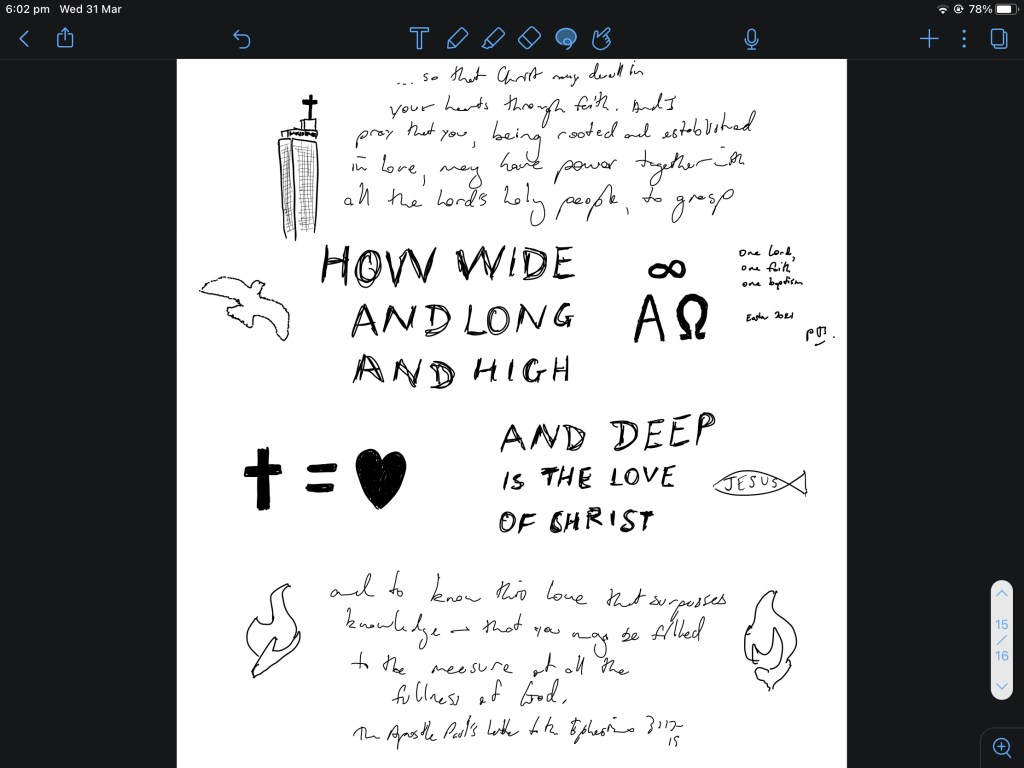 6:02 pm Wed 31 Mar
78%
T
... so that Christ may dwell in
your hearts through faith. And I
pray that you, being rooted and established
in love, may have power together with
all the Lord's holy people, to grasp
HOW WIDE
AND LONG
AND HIGH
∞
ΑΩ
One Lord,
one faith
one baptism
Easter 2021
AND DEEP
IS THE LOVE
OF CHRIST
=
JESUS
and to know this love that surpasses
knowledge – that you may be filled
to the measure of all the
fullness of God.
The Apostle Paul's letter to the Ephesians 3:17-
19
15
/
16